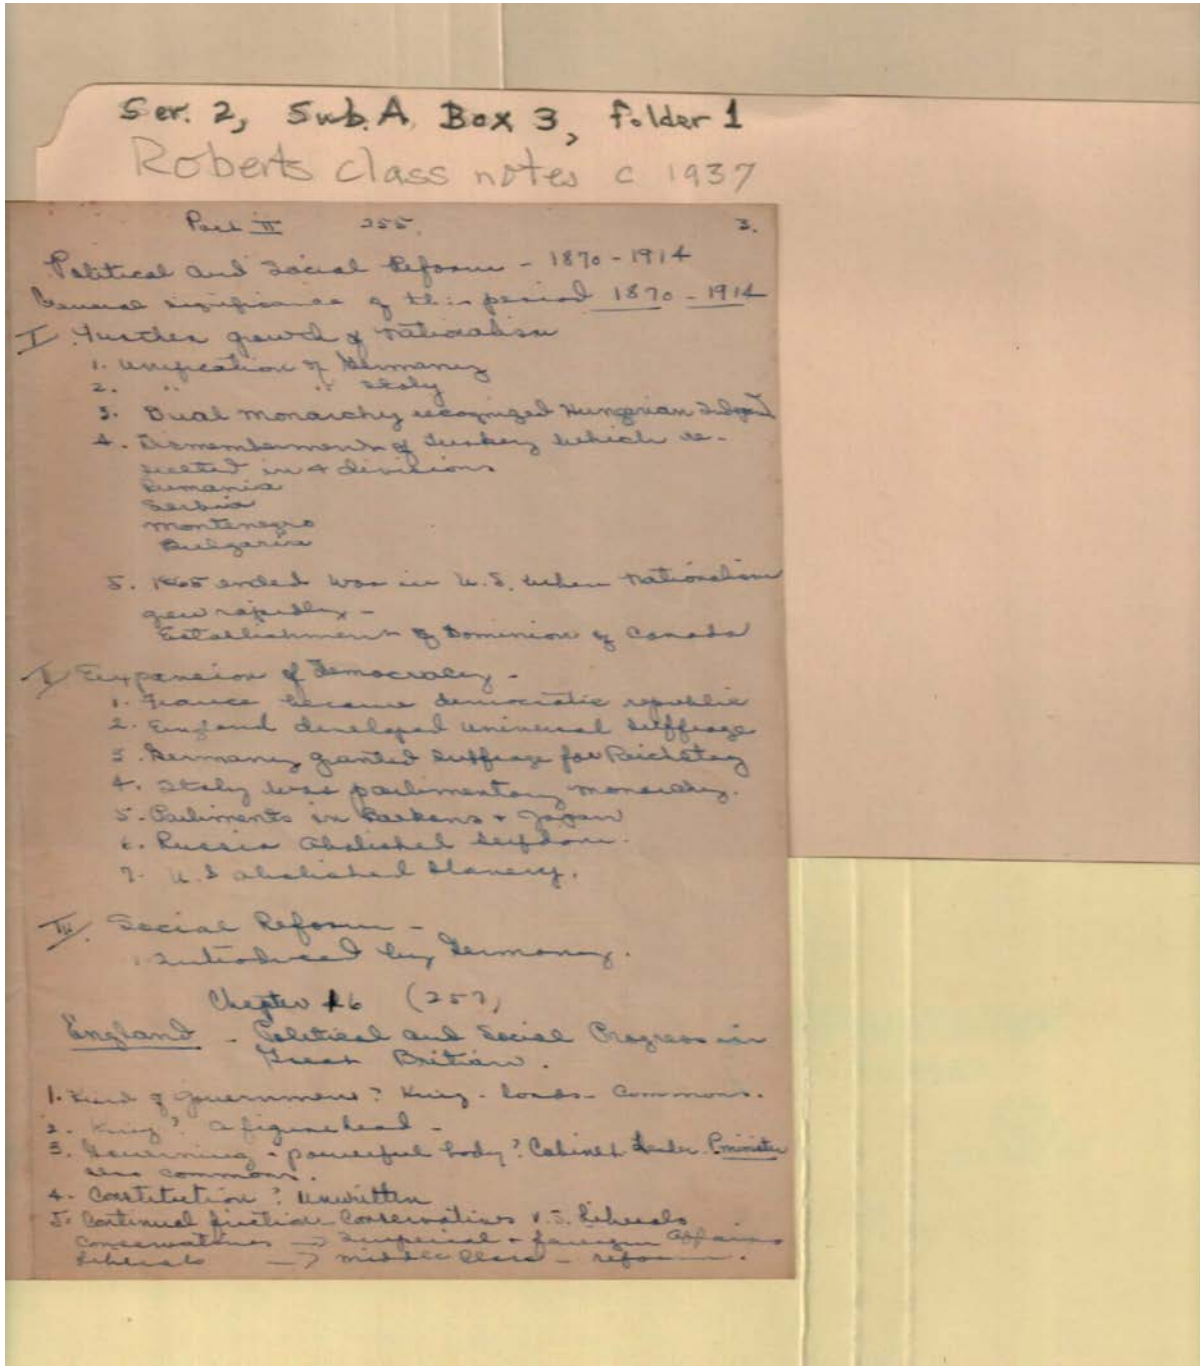 Ser. 2, Sub. A, Box 3, folder 1
Roberts class notes c 1937
Part II 255. 3.
Political and Social Reform - 1870 - 1914
General significance of this period 1870 - 1914
I. Further growth of nationalism
1. Unification of Germany
2. " " Italy
3. Dual monarchy recognized Hungarian
4. Dismemberment of Turkey which re-
sulted in 4 divisions
Rumania
Serbia
Montenegro
Bulgaria
5. 1865 ended war in U.S. when nationalism
grew rapidly -
Establishment of Dominion of Canada
II Expansion of Democracy -
1. France became democratic republic
2. England developed universal suffrage
3. Germany granted suffrage for Reichstag
4. Italy was parlimentary monarchy.
5. Parliments in Balkans + Japan
6. Russia abolished serfdom.
7. U.S abolished slavery.
III. Social Reform -
Introduced by Germany.
Chapter 16 (257)
England - Political and Social Progress in
Great Britian.
1. Kind of government? King - lords - Commons.
2. King? a figurehead -
3. Governing - powerful body? Cabinet leader P.minister
also commons.
4. Constitution? Unwritten
5. Continual friction Conservatives v.s. Liberals
Conservatives → Imperial + foreign affairs
Liberals → middle class - reform.